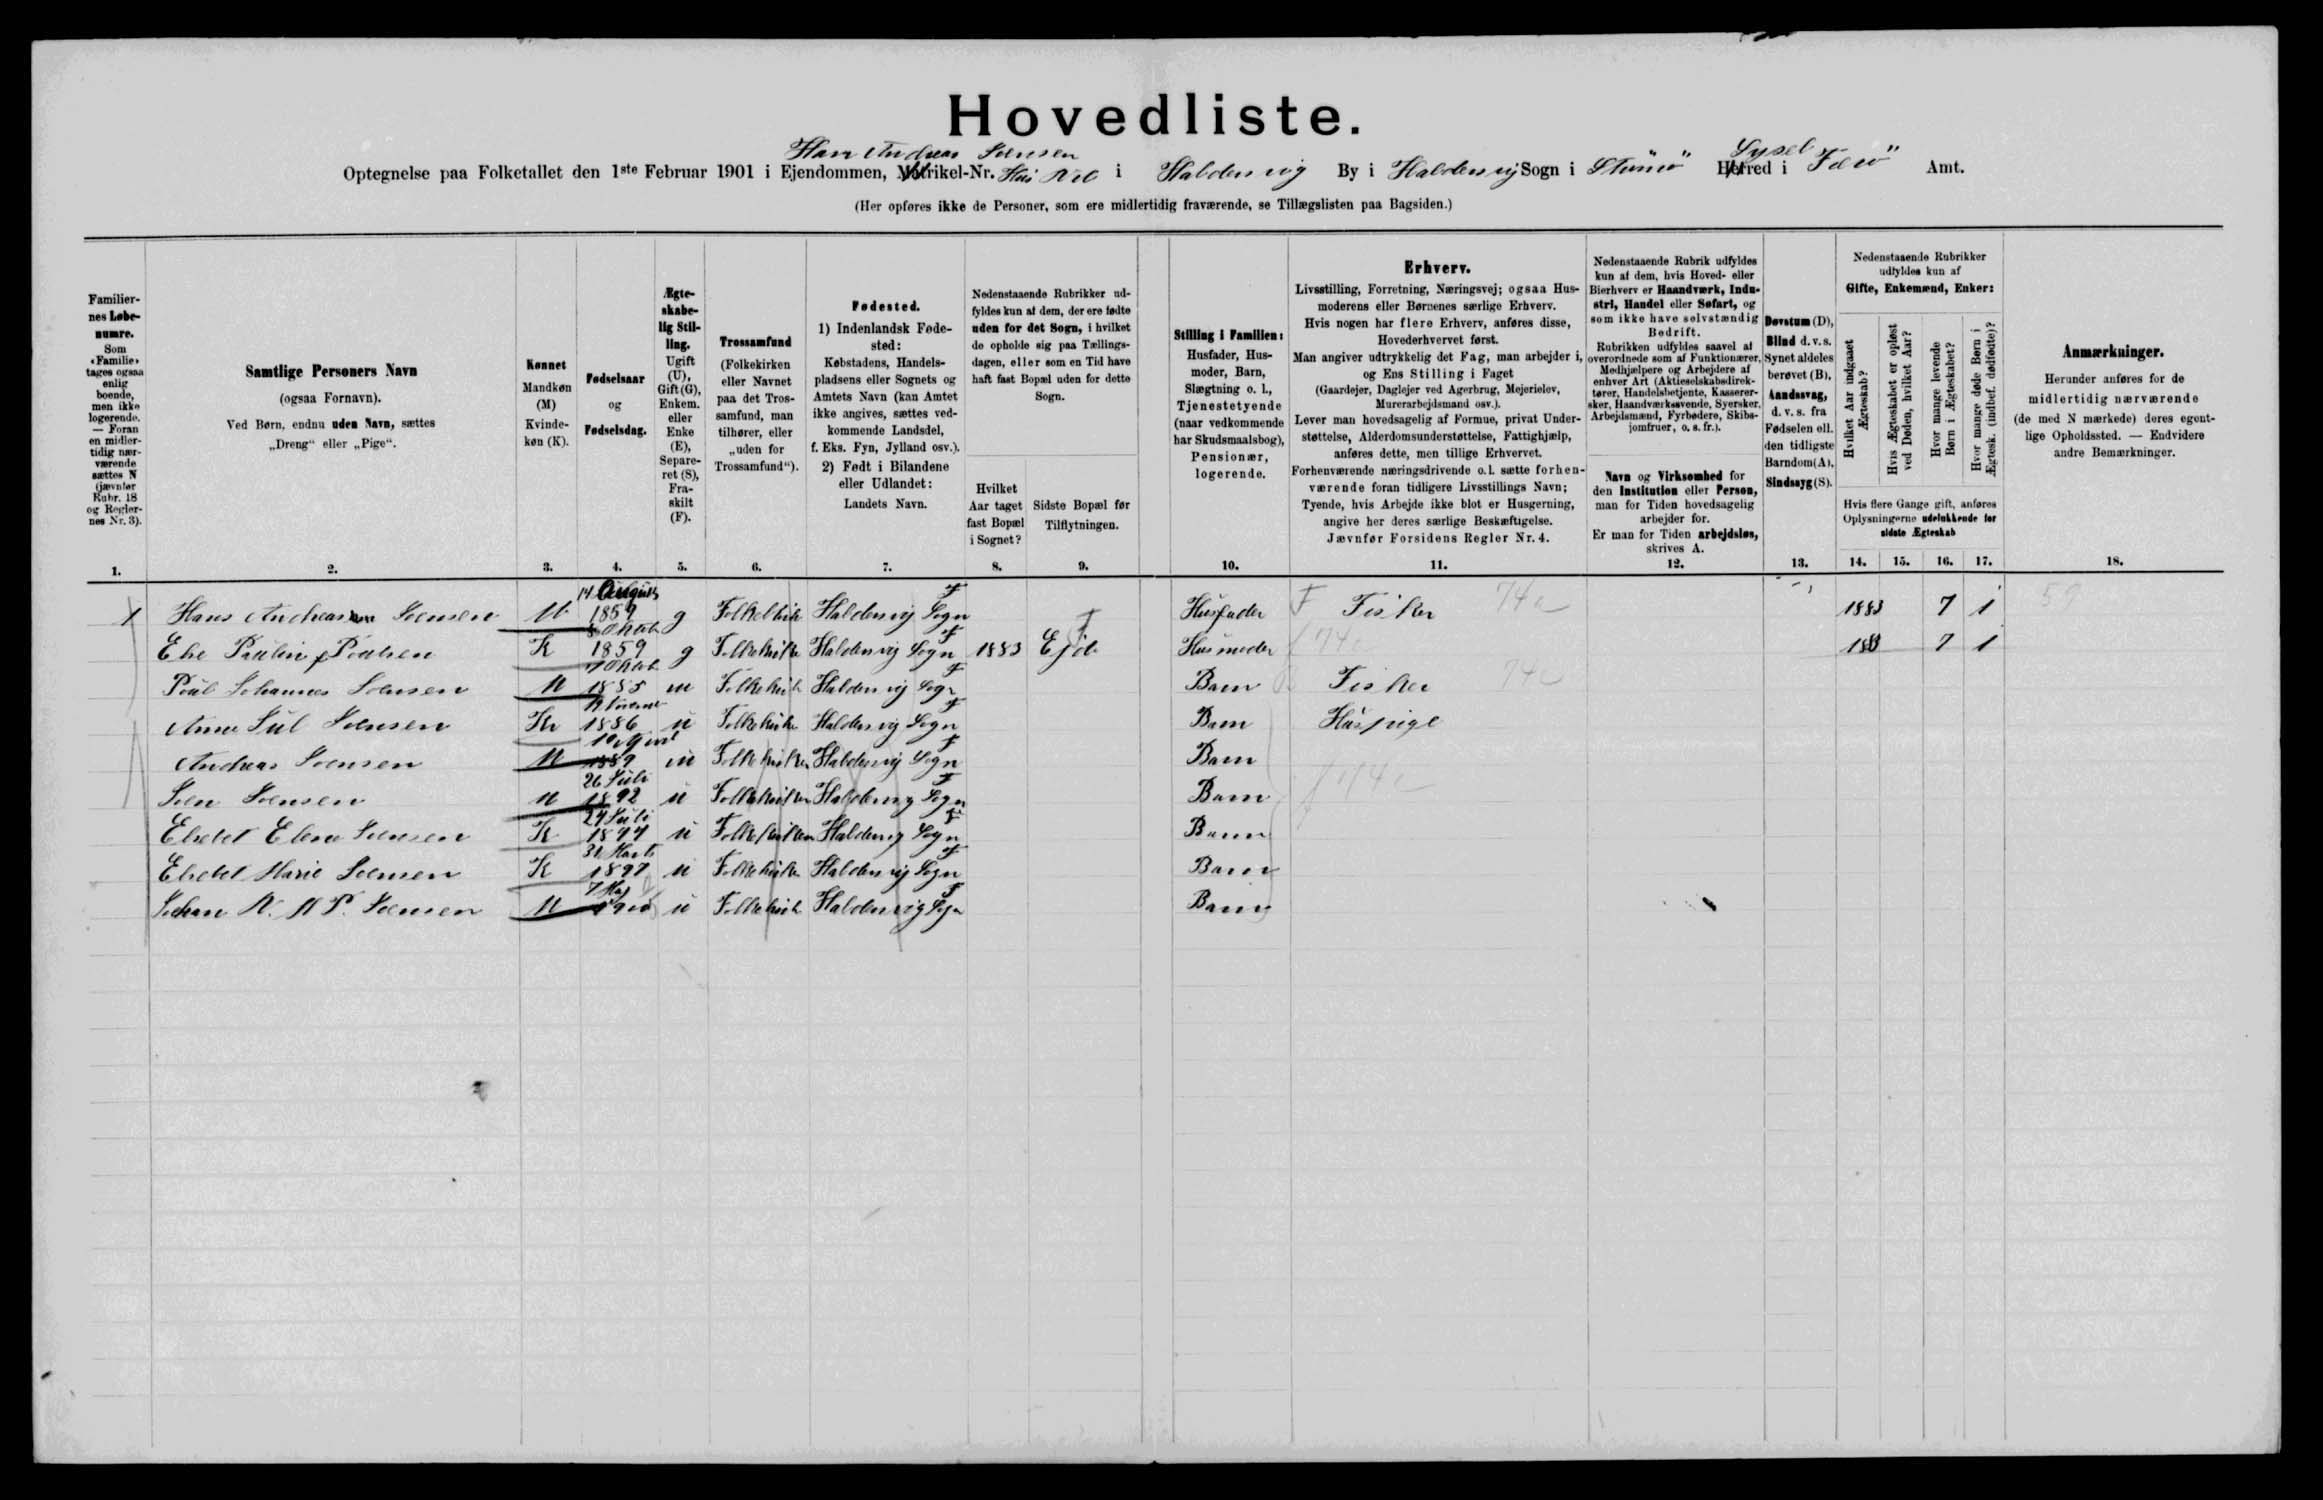 Hovedliste.
Hans Andreas Joensen Sysel
Optegnelse paa Folketallet den 1ste Februar 1901 i Ejendommen, Matrikel-Nr. Hus i Haldersvig By i Haldersvig Sogn i Strömö Herred i Færö Amt.
(Her opføres ikke de Personer, som ere midlertidig fraværende, se Tillægslisten paa Bagsiden.)
Familiernes Løbenumre. Som «Familie» tages ogsaa enlig boende, men ikke logerende. — Foran en midlertidig nærværende sættes N (jævnfør Rubr. 18 og Reglernes Nr. 3).
Samtlige Personers Navn (ogsaa Fornavn). Ved Børn, endnu uden Navn, sættes „Dreng“ eller „Pige“.
Kønnet Mandkøn (M) Kvindekøn (K).
Fødselsaar og Fødselsdag.
Ægteskabelig Stilling. Ugift (U), Gift (G), Enkem. eller Enke (E), Separeret (S), Fraskilt (F).
Trossamfund (Folkekirken eller Navnet paa det Trossamfund, man tilhører, eller „uden for Trossamfund“).
Fødested. 1) Indenlandsk Fødested: Købstadens, Handelspladsens eller Sognets og Amtets Navn (kan Amtet ikke angives, sættes vedkommende Landsdel, f. Eks. Fyn, Jylland osv.). 2) Født i Bilandene eller Udlandet: Landets Navn.
Nedenstaaende Rubrikker udfyldes kun af dem, der ere fødte uden for det Sogn, i hvilket de opholde sig paa Tællingsdagen, eller som en Tid have haft fast Bopæl uden for dette Sogn.
Hvilket Aar taget fast Bopæl i Sognet?
Sidste Bopæl før Tilflytningen.
Stilling i Familien: Husfader, Husmoder, Barn, Slægtning o. l., Tjenestetyende (naar vedkommende har Skudsmaalsbog), Pensionær, logerende.
Erhverv.
Livsstilling, Forretning, Næringsvej; ogsaa Husmoderens eller Børnenes særlige Erhverv.
Hvis nogen har flere Erhverv, anføres disse, Hovederhvervet først.
Man angiver udtrykkelig det Fag, man arbejder i, og Ens Stilling i Faget
(Gaardejer, Daglejer ved Agerbrug, Mejerielev, Murerarbejdsmand osv.).
Lever man hovedsagelig af Formue, privat Understøttelse, Alderdomsunderstøttelse, Fattighjælp, anføres dette, men tillige Erhvervet.
Forhenværende næringsdrivende o. l. sætte forhenværende foran tidligere Livsstillings Navn;
Tyende, hvis Arbejde ikke blot er Husgerning, angive her deres særlige Beskæftigelse.
Jævnfør Forsidens Regler Nr. 4.
Nedenstaaende Rubrik udfyldes kun af dem, hvis Hoved- eller Bierhverv er Haandværk, Industri, Handel eller Søfart, og som ikke have selvstændig Bedrift.
Rubrikken udfyldes saavel af overordnede som af Funktionærer, Medhjælpere og Arbejdere af enhver Art (Aktieselskabsdirektører, Handelsbetjente, Kasserersker, Haandværkssvende, Syersker, Arbejdsmænd, Fyrbødere, Skibsjomfruer, o. s. fr.).
Navn og Virksomhed for den Institution eller Person, man for Tiden hovedsagelig arbejder for.
Er man for Tiden arbejdsløs, skrives A.
Døvstum (D), Blind d. v. s. Synet aldeles berøvet (B), Aandssvag, d. v. s. fra Fødselen ell. den tidligste Barndom (A), Sindssyg (S).
Nedenstaaende Rubrikker udfyldes kun af Gifte, Enkemænd, Enker:
Hvilket Aar indgaaet Ægteskab?
Hvis Ægteskabet er opløst ved Døden, hvilket Aar?
Hvor mange levende Børn i Ægteskabet?
Hvor mange døde Børn i Ægtesk. (indbef. dødfødte)?
Hvis flere Gange gift, anføres Oplysningerne udelukkende for sidste Ægteskab
Anmærkninger. Herunder anføres for de midlertidig nærværende (de med N mærkede) deres egentlige Opholdssted. — Endvidere andre Bemærkninger.
1. 2. 3. 4. 5. 6. 7. 8. 9. 10. 11. 12. 13. 14. 15. 16. 17. 18.
1 Hans Andreas Joensen M 14 August 1859 g Folkekirke Haldersvig Sogn Husfader F Fisker 74c 1883 7 1 59
Else Paulin f Poulsen K Oktob 1859 g Folkekirke Haldersvig Sogn 1883 Ejde Husmoder 74c 7 1
Poul Johannes Joensen M Oktob 1885 u Folkekirk Haldersvig Sogn Barn Fisker 74c
Anna Jul Joensen K 1886 u Folkekirke Haldersvig Sogn Barn Huspige
Andreas Joensen M 10 April 1889 u Folkekirken Haldersvig Sogn Barn
Joen Joensen M 26 Juli 1892 u Folkekirken Haldersvig Sogn Barn 74c
Elsebet Elena Joensen K 24 Juli 1894 u Folkekirken Haldersvig Sogn Barn
Elsebet Marie Joensen K 31 Marts 1897 u Folkekirke Haldersvig Sogn Barn
Johan N. M P. Joensen M 7 Maj 1900 u Folkekirk Haldersvig Sogn Barn